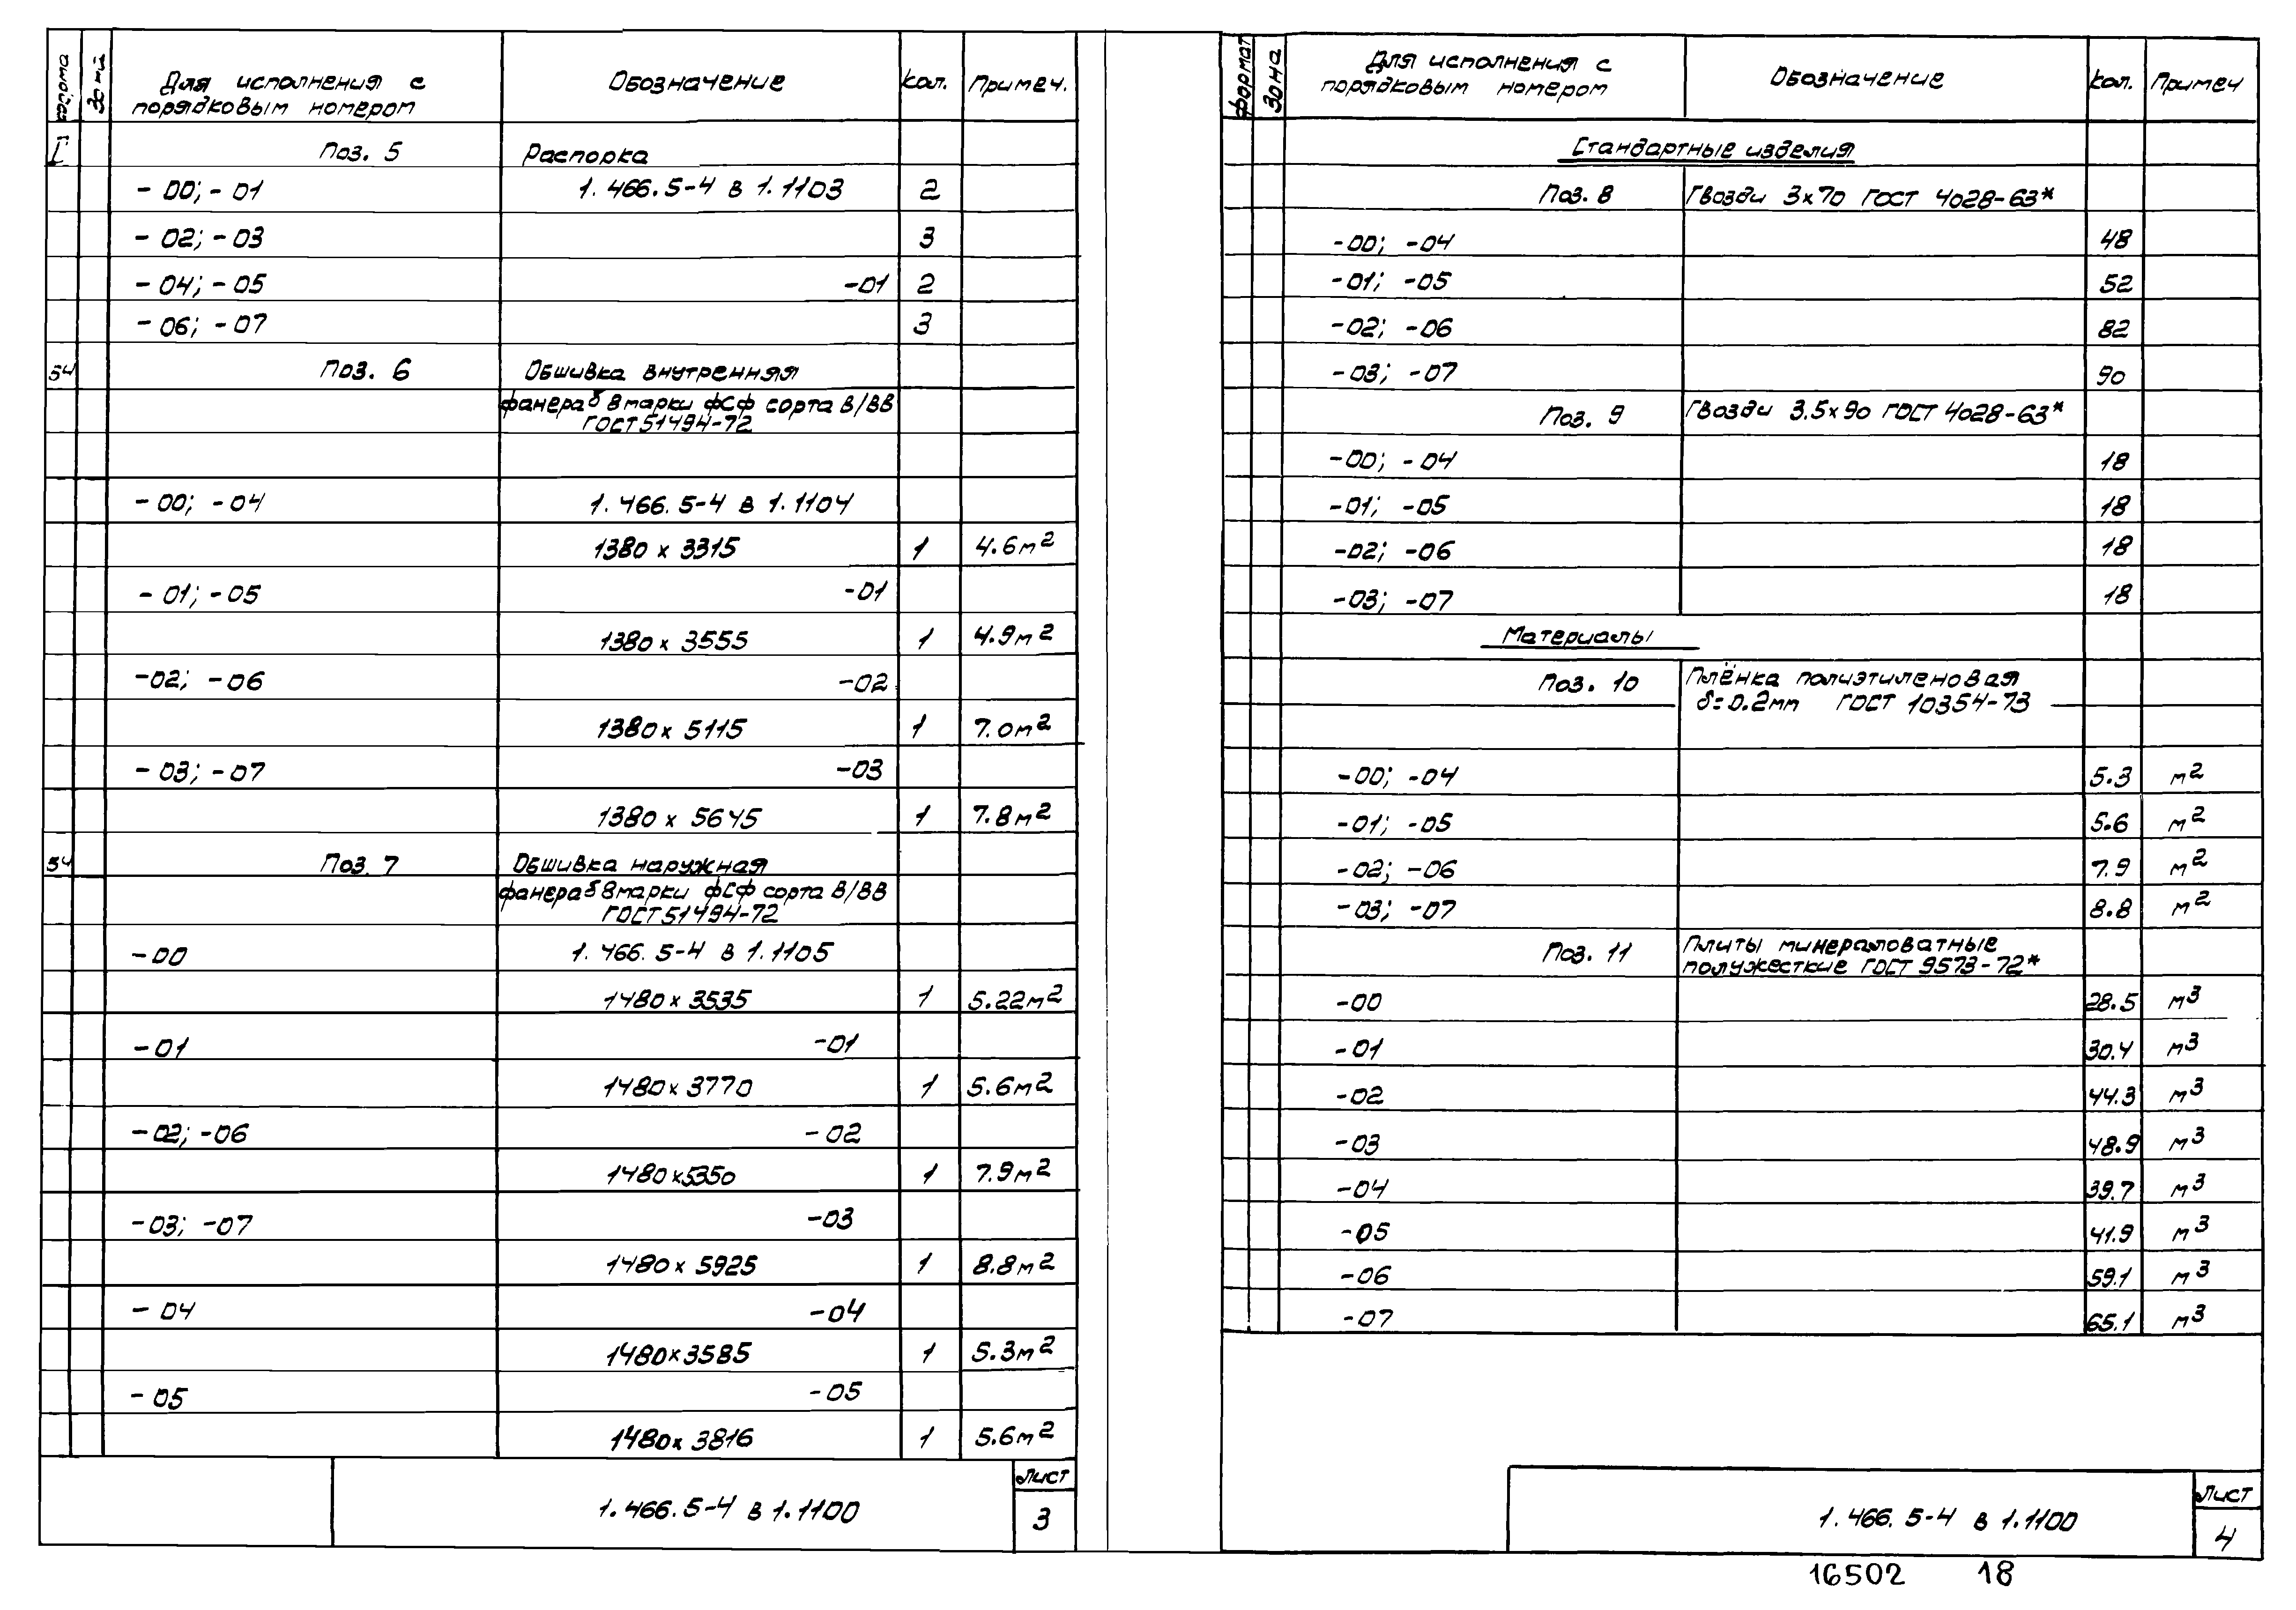 Зона
Для исполнения с
порядковым номером
Обозначение
Кол.
Примеч.
Поз. 5 Распорка
- 00; - 01 1.466.5-4 в 1.1103 2
- 02; - 03 3
- 04; - 05 -01 2
- 06; - 07 3
Поз. 6 Обшивка внутренняя
фанера δ 8 марки ФСФ сорта В/ВВ
ГОСТ 51494-72
- 00; - 04 1.466.5-4 в 1.1104
1380 x 3315 1 4.6 м²
- 01; - 05 -01
1380 x 3555 1 4.9 м²
-02; -06 -02
1380 x 5115 1 7.0 м²
- 03; -07 -03
1380 x 5645 1 7.8 м²
Поз. 7 Обшивка наружная
фанера δ 8 марки ФСФ сорта В/ВВ
ГОСТ 51494-72
-00 1.466.5-4 в 1.1105
1480 x 3535 1 5.22 м²
-01 -01
1480 x 3770 1 5.6 м²
-02; -06 -02
1480 x 5350 1 7.9 м²
-03; -07 -03
1480 x 5925 1 8.8 м²
- 04 -04
1480 x 3585 1 5.3 м²
- 05 - 05
1480 x 3816 1 5.6 м²
1.466.5-4 в 1.1100
Лист
3
Формат
Зона
Для исполнения с
порядковым номером
Обозначение
Кол.
Примеч
Стандартные изделия
Поз. 8 Гвозди 3x70 ГОСТ 4028-63*
-00; -04 48
-01; -05 52
-02; -06 82
-03; -07 90
Поз. 9 Гвозди 3.5x90 ГОСТ 4028-63*
-00; -04 18
-01; -05 18
-02; -06 18
-03; -07 18
Материалы
Поз. 10 Плёнка полиэтиленовая
δ=0.2мм ГОСТ 10354-73
-00; -04 5.3 м²
-01; -05 5.6 м²
-02; -06 7.9 м²
-03; -07 8.8 м²
Поз. 11 Плиты минераловатные
полужесткие ГОСТ 9573-72*
-00 28.5 м³
-01 30.4 м³
-02 44.3 м³
-03 48.9 м³
-04 39.7 м³
-05 41.9 м³
-06 59.1 м³
-07 65.1 м³
1.466.5-4 в 1.1100
Лист
4
16502 18